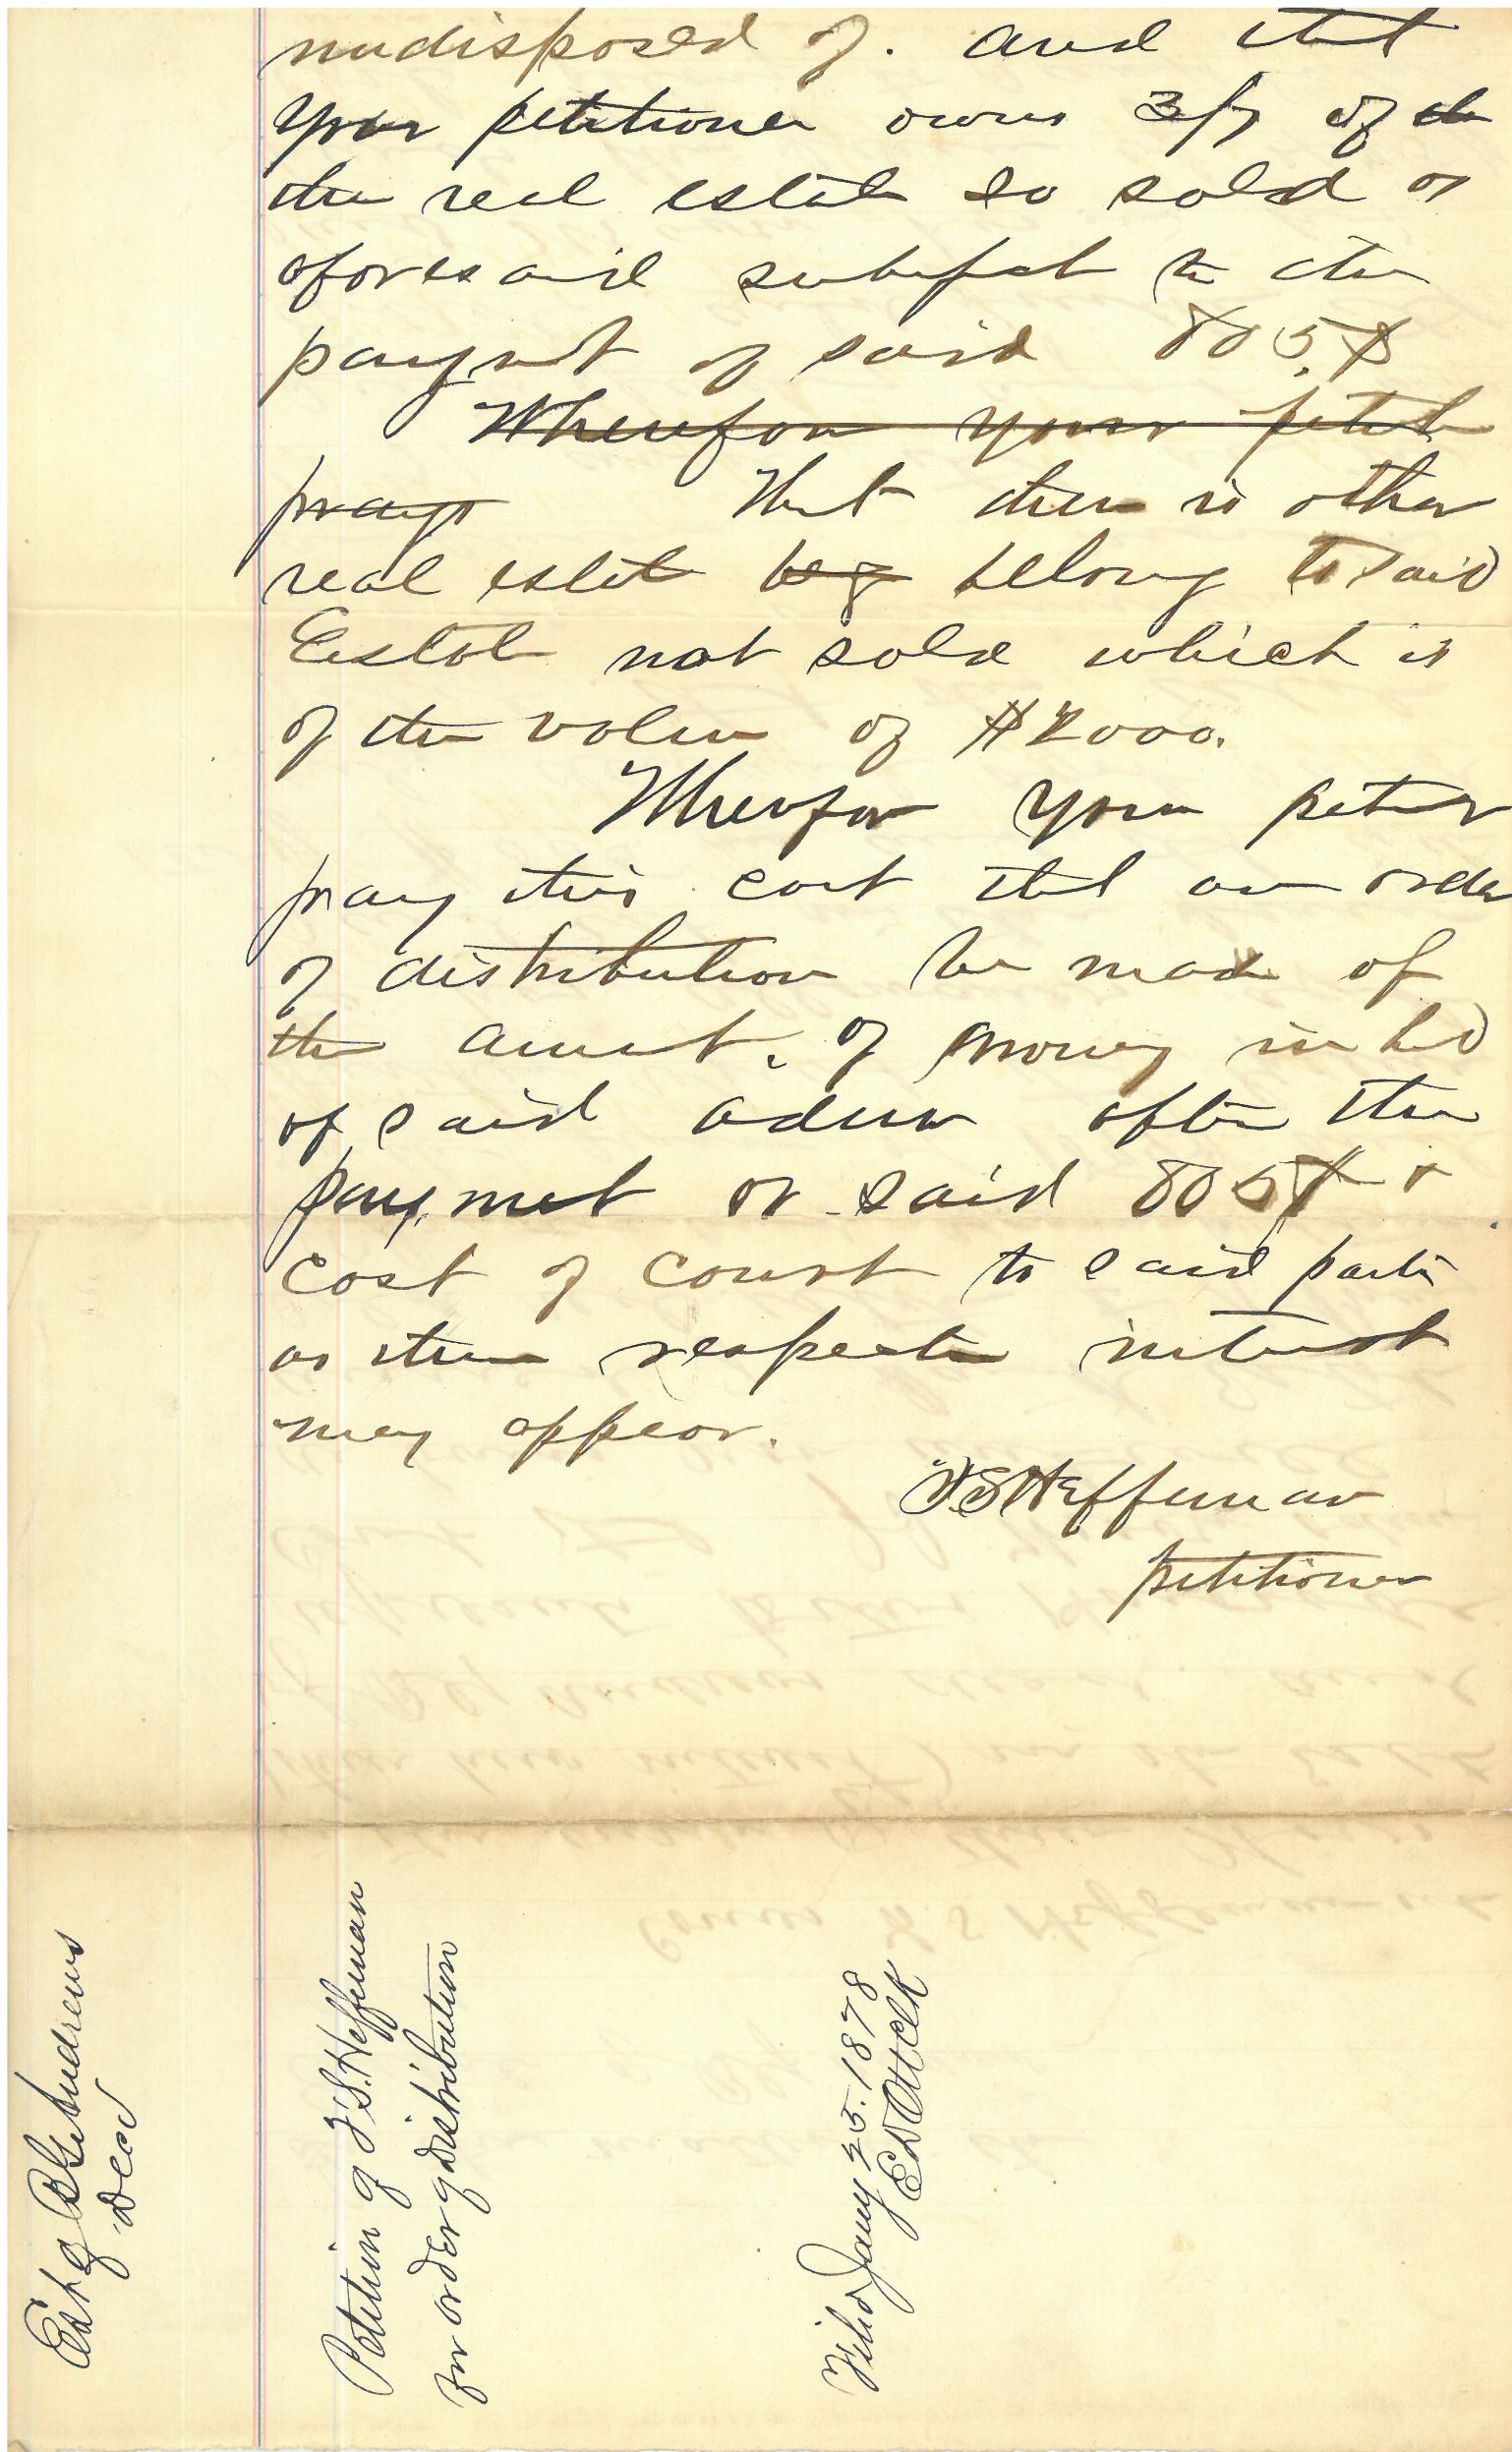 undisposed of. and that
your petitioner owns 3/7 of the
the real estate so sold as
aforesaid subject to the
paymt of said 805.
Wherefor your petit
prays That there is other
real estate belong to said
Estate not sold which is
of the value of $2000.
Wherefor your petnr
pray this cort that an order
of distribution be made of
the amnt. of money in hd
of said admr after the
paymet or said 805 +
cost of court to said parti
as their respecte interest
may appear.
F.S. Heffernan
petitioner
Est of B G Andrews
Decd
Petition of F.S. Heffernan
for order of Distribution
Filed Jany 25. 1878
E D Ott Clk